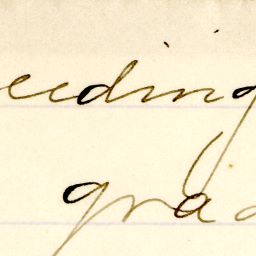 eeding
grad